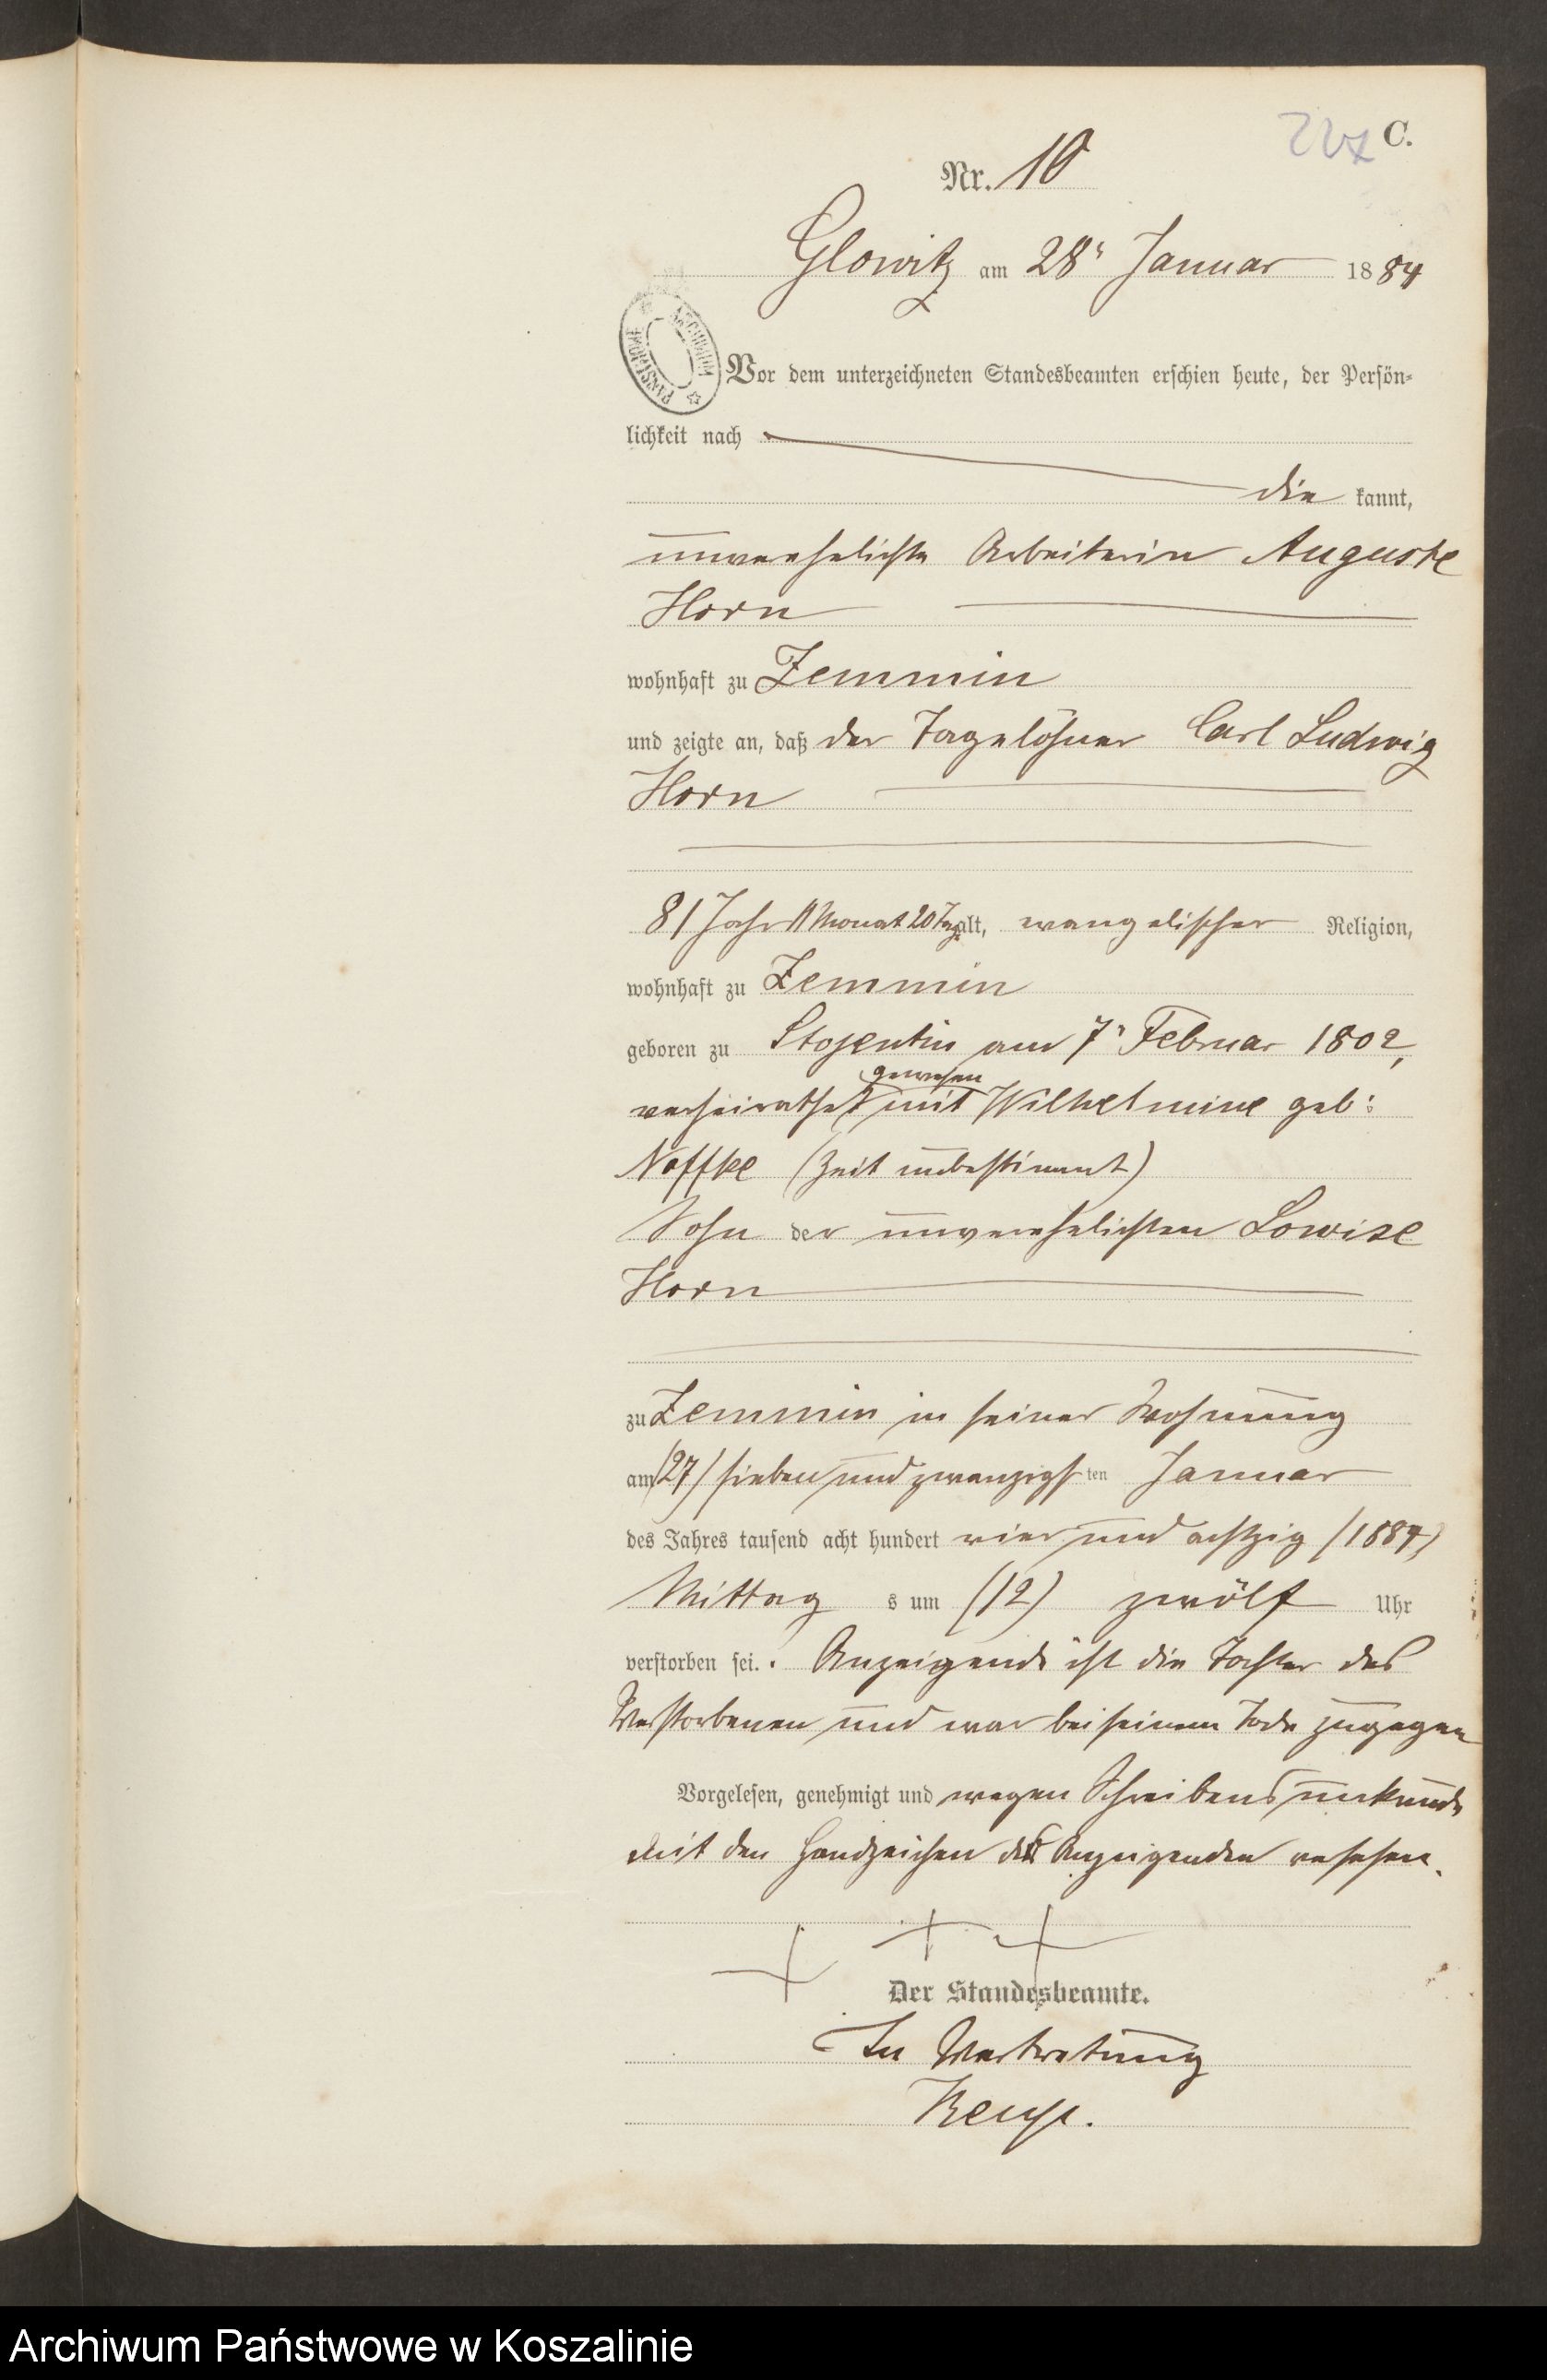 C.
Nr. 10
Glowitz am 28ⁿ Januar 1884
Vor dem unterzeichneten Standesbeamten erschien heute, der Persön-
lichkeit nach
die kannt,
unverehelichte Arbeiterin Auguste
Horn
wohnhaft zu Zemmin
und zeigte an, daß der Tagelöhner Carl Ludwig
Horn
81 Jahr 11 Monat 20 Tage alt, evangelischer Religion,
wohnhaft zu Zemmin
geboren zu Stojentin am 7ⁿ Februar 1802,
gewesen
verheirathet mit Wilhelmine geb:
Noffke (Zeit unbestimmt)
Sohn der unverehelichten Lowise
Horn
zu Zemmin in seiner Wohnung
am (27) sieben und zwanzigsten Januar
des Jahres tausend acht hundert vier und achtzig (1884)
Mittags um (12) zwölf Uhr
verstorben sei. Anzeigende ist die Tochter des
Verstorbenen und war bei seinem Tode zugegen
Vorgelesen, genehmigt und wegen Schreibensunkunde
mit den Handzeichen der Anzeigenden vesehen.
+ + +
Der Standesbeamte.
In Vertretung
Archiwum Państwowe w Koszalinie